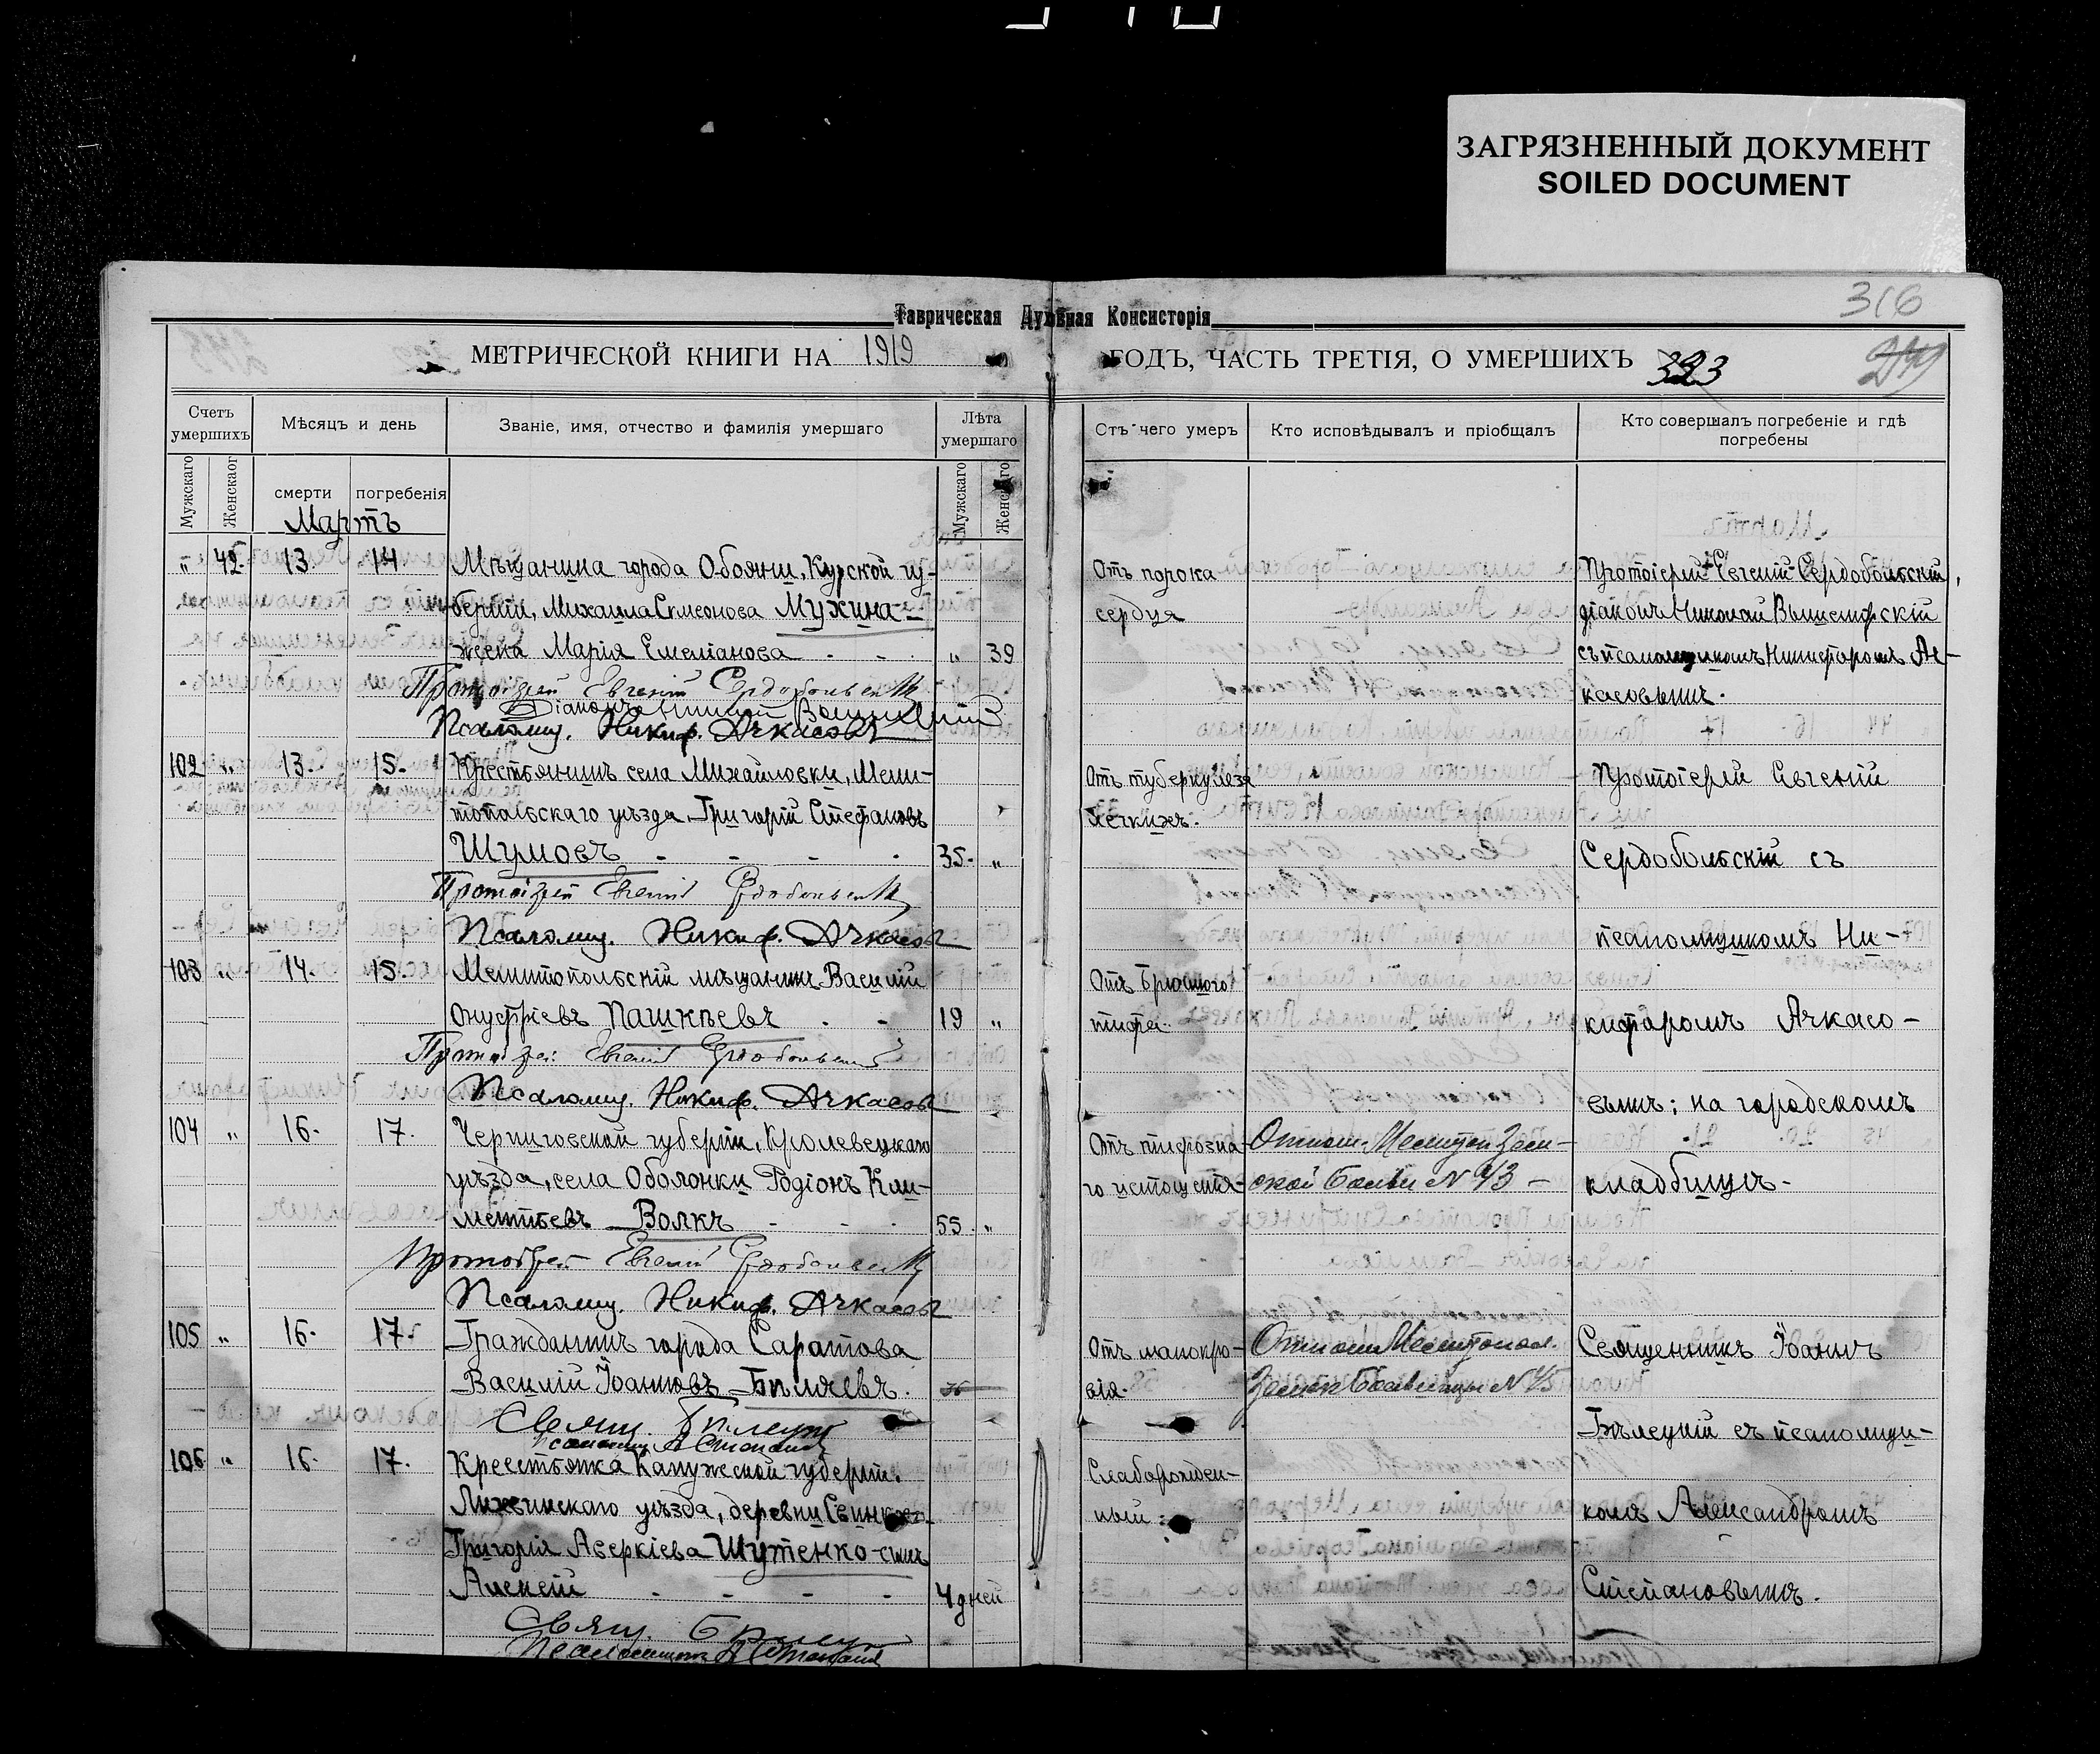 ЗАГРЯЗНЕННЫЙ ДОКУМЕНТ
SOILED DOCUMENT
316
Таврическая Духовная Консисторія
МЕТРИЧЕСКОЙ КНИГИ НА 1919
ГОДЪ, ЧАСТЬ ТРЕТІЯ, О УМЕРШИХЪ 323
Счетъ умершихъ
Мѣсяцъ и день
Званіе, имя, отчество и фамилія умершаго
Лѣта умершаго
Отъ чего умеръ
Кто исповѣдывалъ и пріобщалъ
Кто совершалъ погребеніе и гдѣ погребены
Мужскаго
Женскаго
смерти
погребенія
Мужскаго
Женскаго
Мартъ
„ 42. 13. 14 Мѣщанина города Обояни, Курской гу-
берніи, Михаила Симеонова Мухина
жена Марія Емеліанова „ 39
Отъ порока
сердца
Протоіерей Евгеній Сердобольскій,
діаконъ Николай
съ псаломщикомъ Никифоромъ Ач-
касовымъ.
Протоіерей Евгеній Сердобольскій
Діаконъ Николай
Псаломщ. Никиф. Ачкасовъ
102 „ 13. 15. Крестьянинъ села Михайловки, Мели-
топольскаго уѣзда, Григорій Стефановъ
Шумовъ 35. „
Отъ туберкулеза
легкихъ.
Протоіерей Евгеній
Сердобольскій съ
псаломщикомъ Ни-
кифоромъ Ачкасо-
вымъ; на городскомъ
кладбищѣ.
Протоіерей Евгеній Сердобольскій
Псаломщ. Никиф. Ачкасовъ
103 „ 14. 15. Мелитопольскій мѣщанинъ Василій
Онуфріевъ Пашкѣевъ 19 „
Отъ брюшного
тифа.
Протоіерей Евгеній Сердобольскій
Псаломщ. Никиф. Ачкасовъ
104 „ 16. 17. Черниговской губерніи, Кролевецкаго
уѣзда, села Оболонки Родіонъ Кли-
ментьевъ Волкъ 55. „
Отъ тифозна-
го истощенія
Отнош. Мелитоп. Зем-
ской Больн. N 43
Протоіерей Евгеній Сердобольскій
Псаломщ. Никиф. Ачкасовъ
105 „ 16. 17. Гражданинъ города Саратова
Василій Іоанновъ Бѣляевъ.
Отъ малокро-
вія.
Отнош. Мелитопол.
Земск. Больницы N 45
Священникъ Іоаннъ
Бѣлецкій съ псаломщи-
комъ Александромъ
Степановымъ.
Свящ.
106 „ 16. 17. Крестьянка Калужской губерніи.
Лихвинскаго уѣзда, деревни
Григорія Аверкіева Шутенко сынъ
Алексій 4 дней
Слаборожден-
ный.
Свящ.
Псаломщикъ А Степановъ